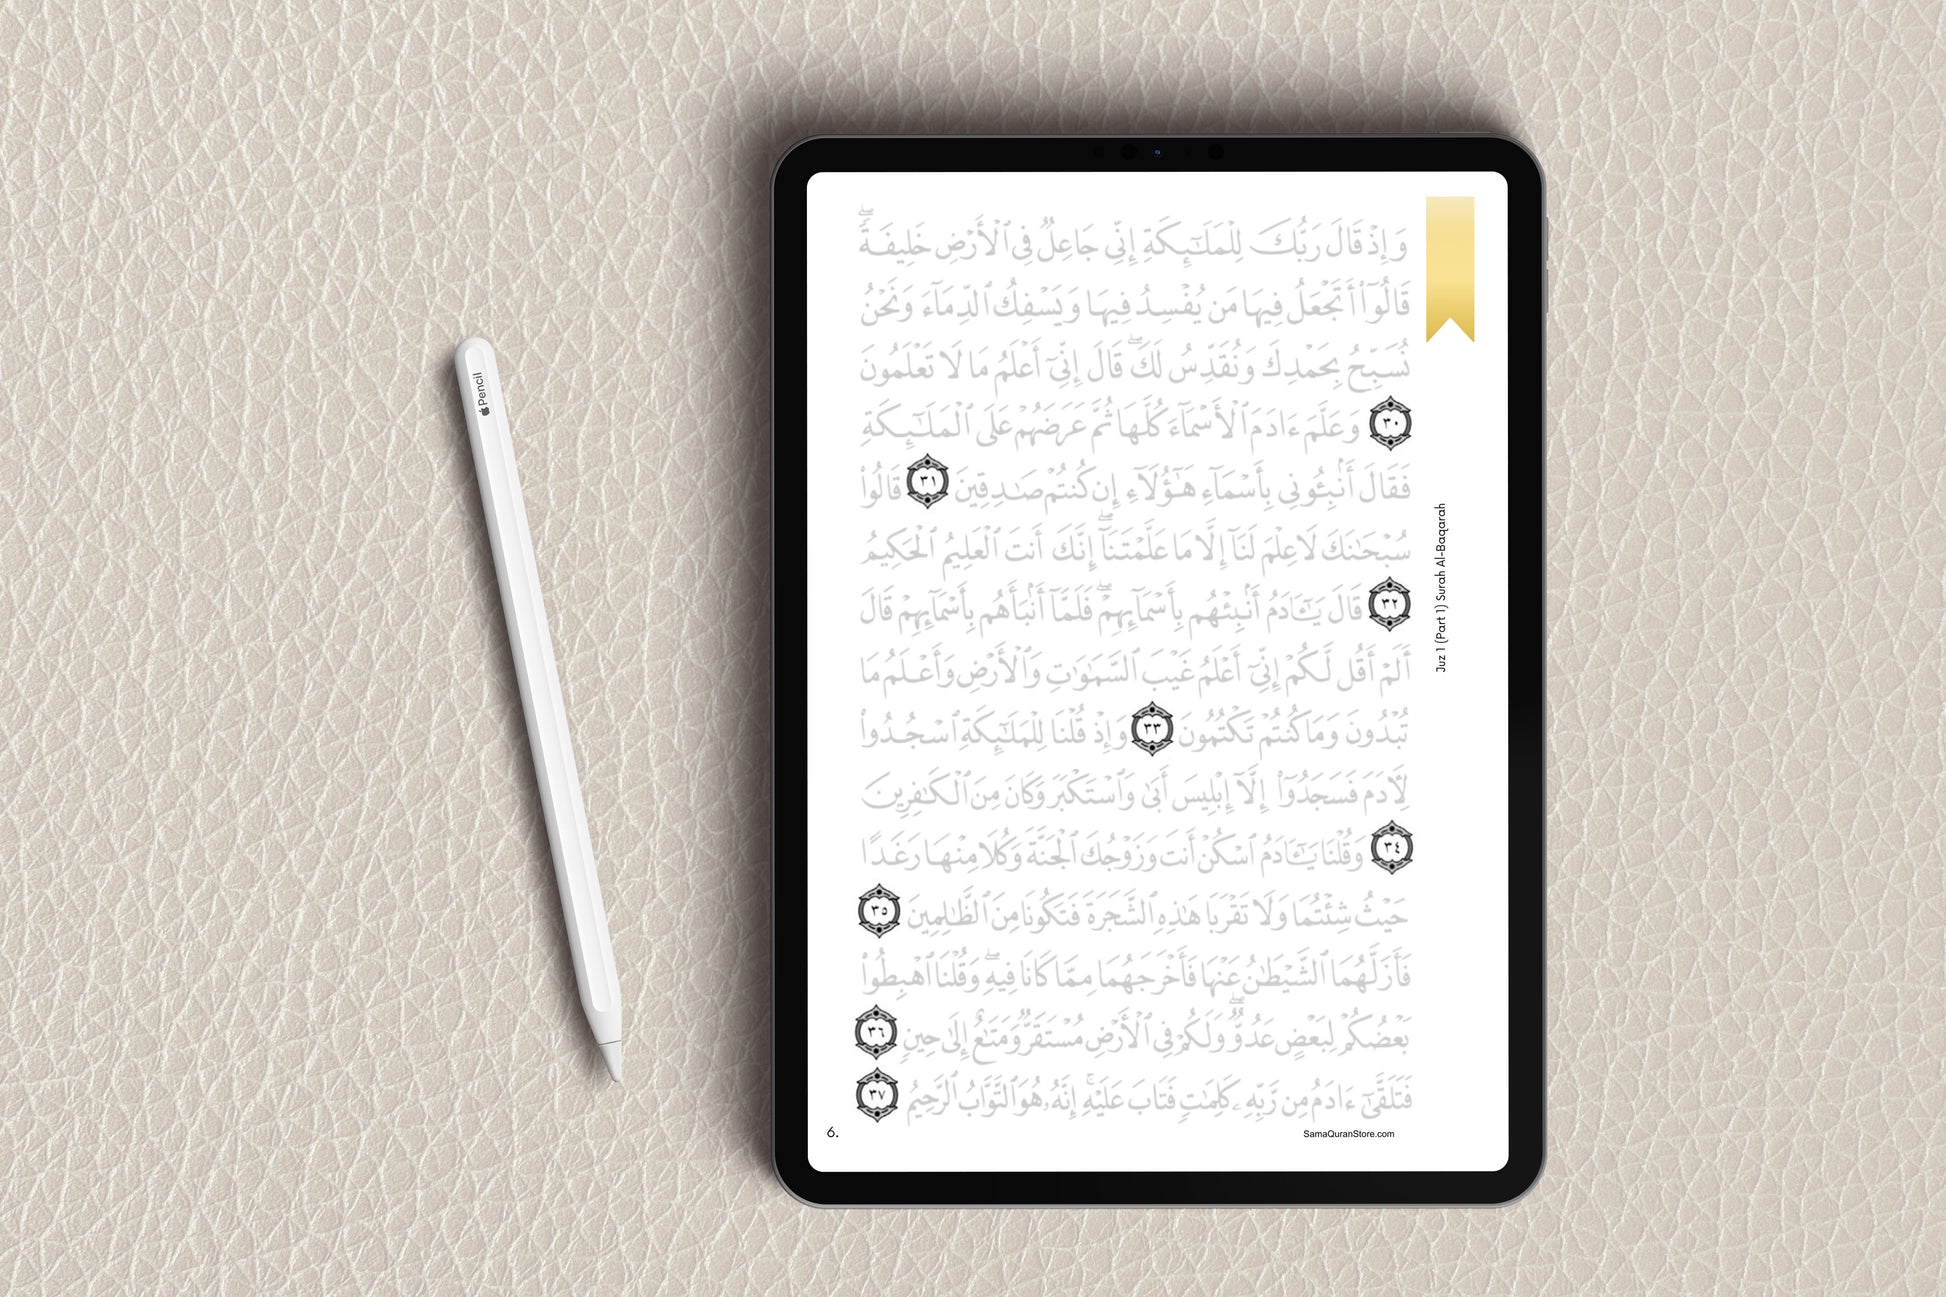 وَإِذْ قَالَ رَبُّكَ لِلْمَلَٰٓئِكَةِ إِنِّى جَاعِلٌ فِى ٱلْأَرْضِ خَلِيفَةً ۖ
قَالُوٓا۟ أَتَجْعَلُ فِيهَا مَن يُفْسِدُ فِيهَا وَيَسْفِكُ ٱلدِّمَآءَ وَنَحْنُ
نُسَبِّحُ بِحَمْدِكَ وَنُقَدِّسُ لَكَ ۖ قَالَ إِنِّىٓ أَعْلَمُ مَا لَا تَعْلَمُونَ
٣٠ وَعَلَّمَ ءَادَمَ ٱلْأَسْمَآءَ كُلَّهَا ثُمَّ عَرَضَهُمْ عَلَى ٱلْمَلَٰٓئِكَةِ
فَقَالَ أَنۢبِـُٔونِى بِأَسْمَآءِ هَٰٓؤُلَآءِ إِن كُنتُمْ صَٰدِقِينَ ٣١ قَالُوا۟
سُبْحَٰنَكَ لَا عِلْمَ لَنَآ إِلَّا مَا عَلَّمْتَنَآ ۖ إِنَّكَ أَنتَ ٱلْعَلِيمُ ٱلْحَكِيمُ
٣٢ قَالَ يَٰٓـَٔادَمُ أَنۢبِئْهُم بِأَسْمَآئِهِمْ ۖ فَلَمَّآ أَنۢبَأَهُم بِأَسْمَآئِهِمْ قَالَ
أَلَمْ أَقُل لَّكُمْ إِنِّىٓ أَعْلَمُ غَيْبَ ٱلسَّمَٰوَٰتِ وَٱلْأَرْضِ وَأَعْلَمُ مَا
تُبْدُونَ وَمَا كُنتُمْ تَكْتُمُونَ ٣٣ وَإِذْ قُلْنَا لِلْمَلَٰٓئِكَةِ ٱسْجُدُوا۟
لِـَٔادَمَ فَسَجَدُوٓا۟ إِلَّآ إِبْلِيسَ أَبَىٰ وَٱسْتَكْبَرَ وَكَانَ مِنَ ٱلْكَٰفِرِينَ
٣٤ وَقُلْنَا يَٰٓـَٔادَمُ ٱسْكُنْ أَنتَ وَزَوْجُكَ ٱلْجَنَّةَ وَكُلَا مِنْهَا رَغَدًا
حَيْثُ شِئْتُمَا وَلَا تَقْرَبَا هَٰذِهِ ٱلشَّجَرَةَ فَتَكُونَا مِنَ ٱلظَّٰلِمِينَ ٣٥
فَأَزَلَّهُمَا ٱلشَّيْطَٰنُ عَنْهَا فَأَخْرَجَهُمَا مِمَّا كَانَا فِيهِ ۖ وَقُلْنَا ٱهْبِطُوا۟
بَعْضُكُمْ لِبَعْضٍ عَدُوٌّ ۖ وَلَكُمْ فِى ٱلْأَرْضِ مُسْتَقَرٌّ وَمَتَٰعٌ إِلَىٰ حِينٍ ٣٦
فَتَلَقَّىٰٓ ءَادَمُ مِن رَّبِّهِۦ كَلِمَٰتٍ فَتَابَ عَلَيْهِ ۚ إِنَّهُۥ هُوَ ٱلتَّوَّابُ ٱلرَّحِيمُ ٣٧
Juz 1 (Part 1) Surah Al-Baqarah
6.
SamaQuranStore.com
Pencil